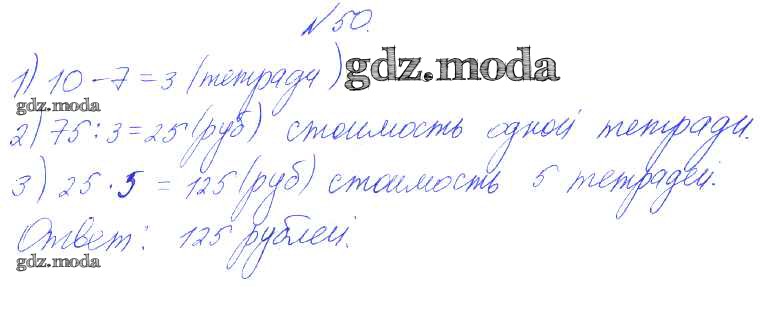 №50.
1) 10 - 7 = 3 (тетради) gdz.moda
gdz.moda
2) 75 : 3 = 25 (руб) стоимость одной тетради.
3) 25 · 5 = 125 (руб) стоимость 5 тетрадей.
Ответ: 125 рублей.
gdz.moda